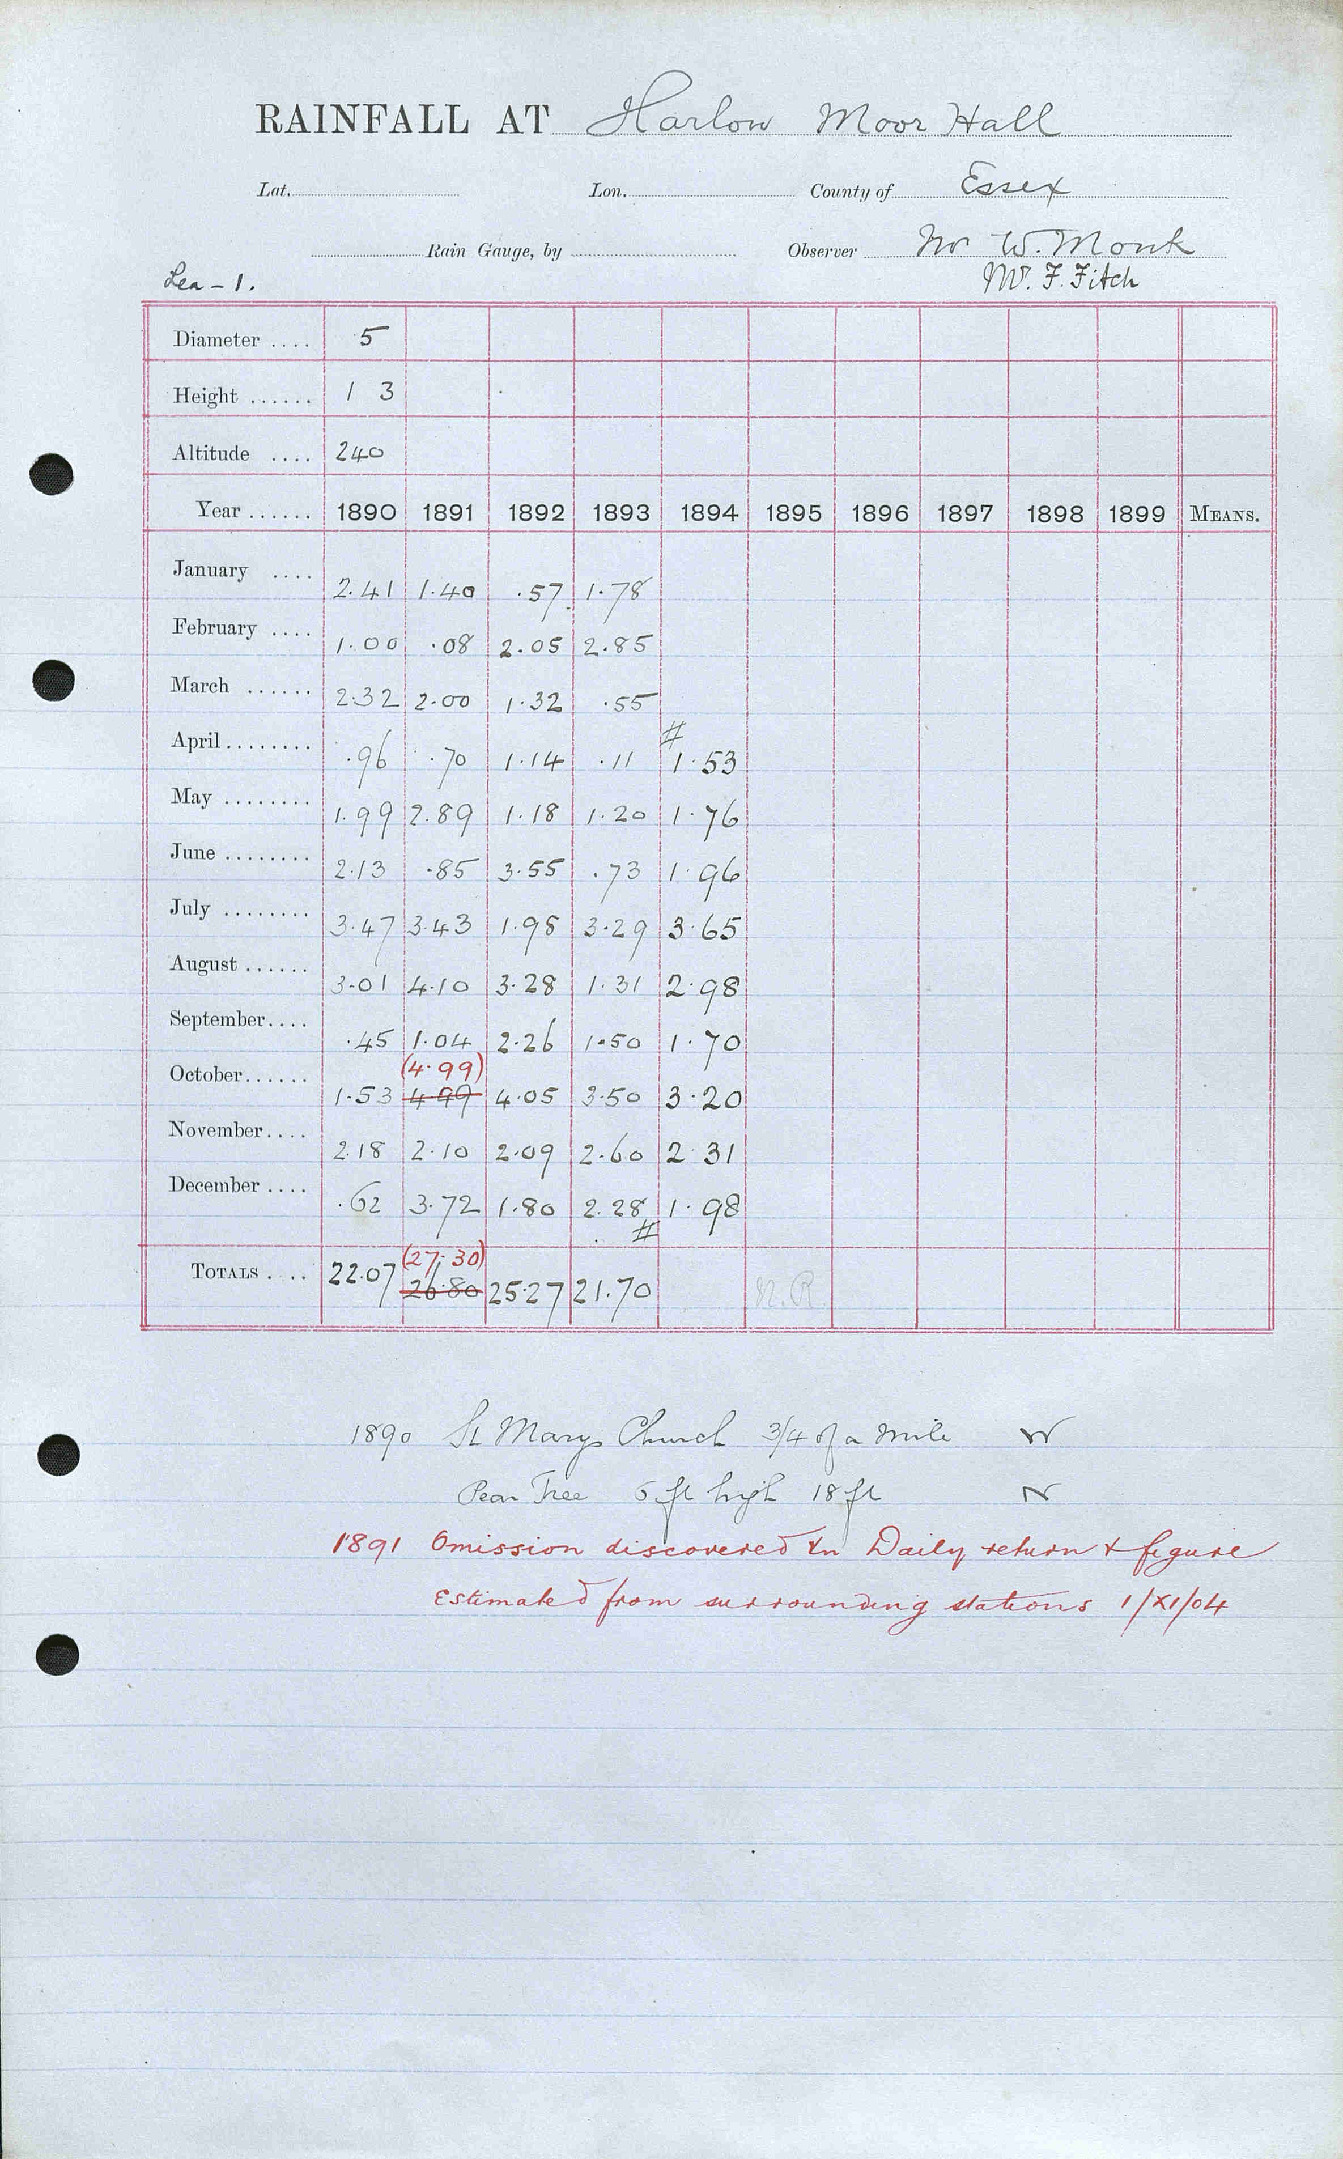 RAINFALL AT Harlow Moor Hall
Lat. Lon. County of Essex
Rain Gauge, by Observer Mr W. Monk
Lea - 1. W. F. Fitch
Diameter .... 5
Height ...... 1 3
Altitude .... 240
Year ...... 1890 1891 1892 1893 1894 1895 1896 1897 1898 1899 MEANS.
January .... 2.41 1.40 .57 1.78
February .... 1.00 .08 2.05 2.85
March ...... 2.32 2.00 1.32 .55
#
April ........ .96 .70 1.14 .11 1.53
May ........ 1.99 2.89 1.18 1.20 1.76
June ........ 2.13 .85 3.55 .73 1.96
July ........ 3.47 3.43 1.98 3.29 3.65
August ...... 3.01 4.10 3.28 1.31 2.98
September.... .45 1.04 2.26 1.50 1.70
(4.99)
October...... 1.53 4.49 4.05 3.50 3.20
November.... 2.18 2.10 2.09 2.60 2.31
December .... .62 3.72 1.80 2.28 1.98
#
(27.30)
TOTALS .... 22.07 26.80 25.27 21.70 N.R.
1890 St Marys Church 3/4 of a mile W
Pear Tree 5 ft high 18 ft N
1891 Omission discovered in Daily return & figure
Estimated from surrounding stations 1/XI/04